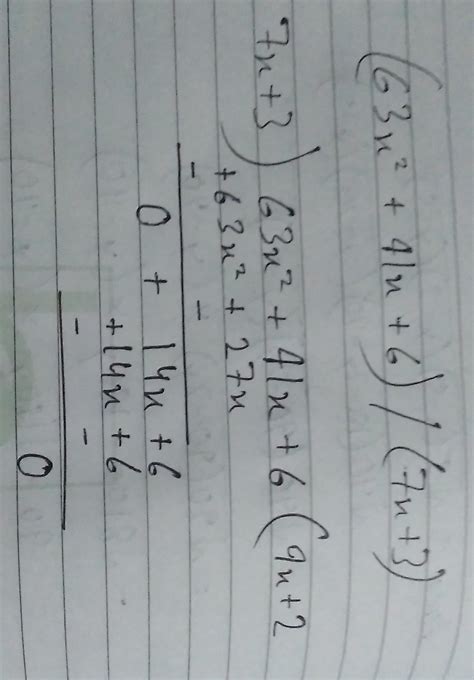 (63x² + 41x + 6) / (7x + 3)
7x + 3 ) 63x² + 41x + 6 ( 9x + 2
+63x² + 27x
- -
0 + 14x + 6
+14x + 6
- -
0